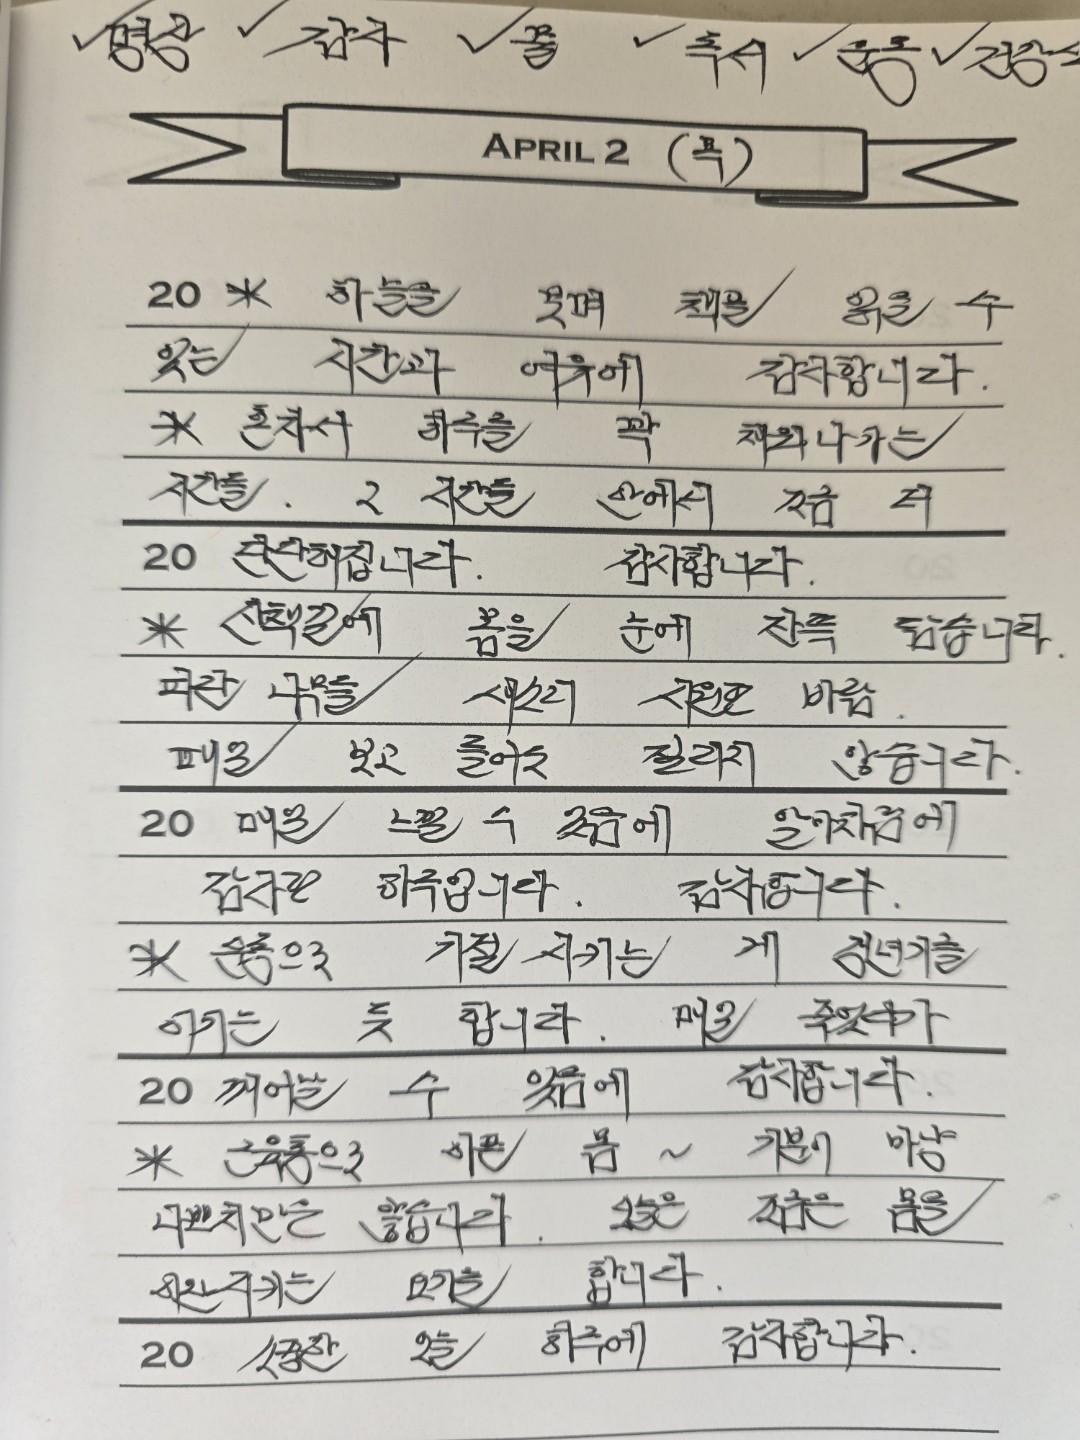 ✓명상 ✓감사 ✓물 ✓독서 ✓운동 ✓건강식
APRIL 2 (목)
20 * 하늘을 보며 책을 읽을 수
있는 시간과 여유에 감사합니다.
* 혼자서 하루를 꽉 채워나가는
시간들. 그 시간들 안에서 조금 더
20 단단해집니다. 감사합니다.
* 산책길에 봄을 눈에 잔뜩 담습니다.
파란 나무들 새소리 시원한 바람.
매일 보고 들어도 질리지 않습니다.
20 매일 느낄 수 있음에 알아차림에
감사한 하루입니다. 감사합니다.
* 운동으로 기절 시키는 게 갱년기를
이기는 듯 합니다. 매일 죽었다가
20 깨어날 수 있음에 감사합니다.
* 근육통으로 아픈 몸 ~ 기분이 마냥
나쁘지만은 않습니다. 오늘은 조금은 몸을
완시키는 요가를 합니다.
20 소중한 오늘 하루에 감사합니다.